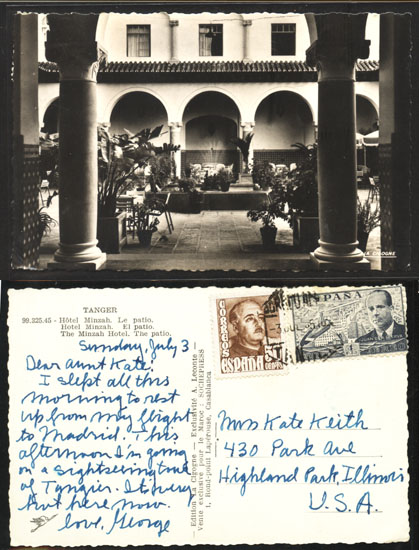 LA CIGOGNE
TANGER
99.325.45 - Hôtel Minzah. Le patio.
Hotel Minzah. El patio.
The Minzah Hotel. The patio.
Sunday, July 3
Dear Aunt Kate:
I slept all this
morning to rest
up from my flight
to Madrid. This
afternoon I'm going
on a sightseeing tour
of Tangier. It's very
hot here now.
Love, George
Edition La Cigogne - Exclusivité A. Leconte -
Vente exclusive pour le Maroc: SOCHEPRESS
1, Rond-point Lapérouse, Casablanca
CORREOS
ESPAÑA
ESPAÑA
Mrs Kate Keith
430 Park Ave
Highland Park, Illinois
U.S.A.